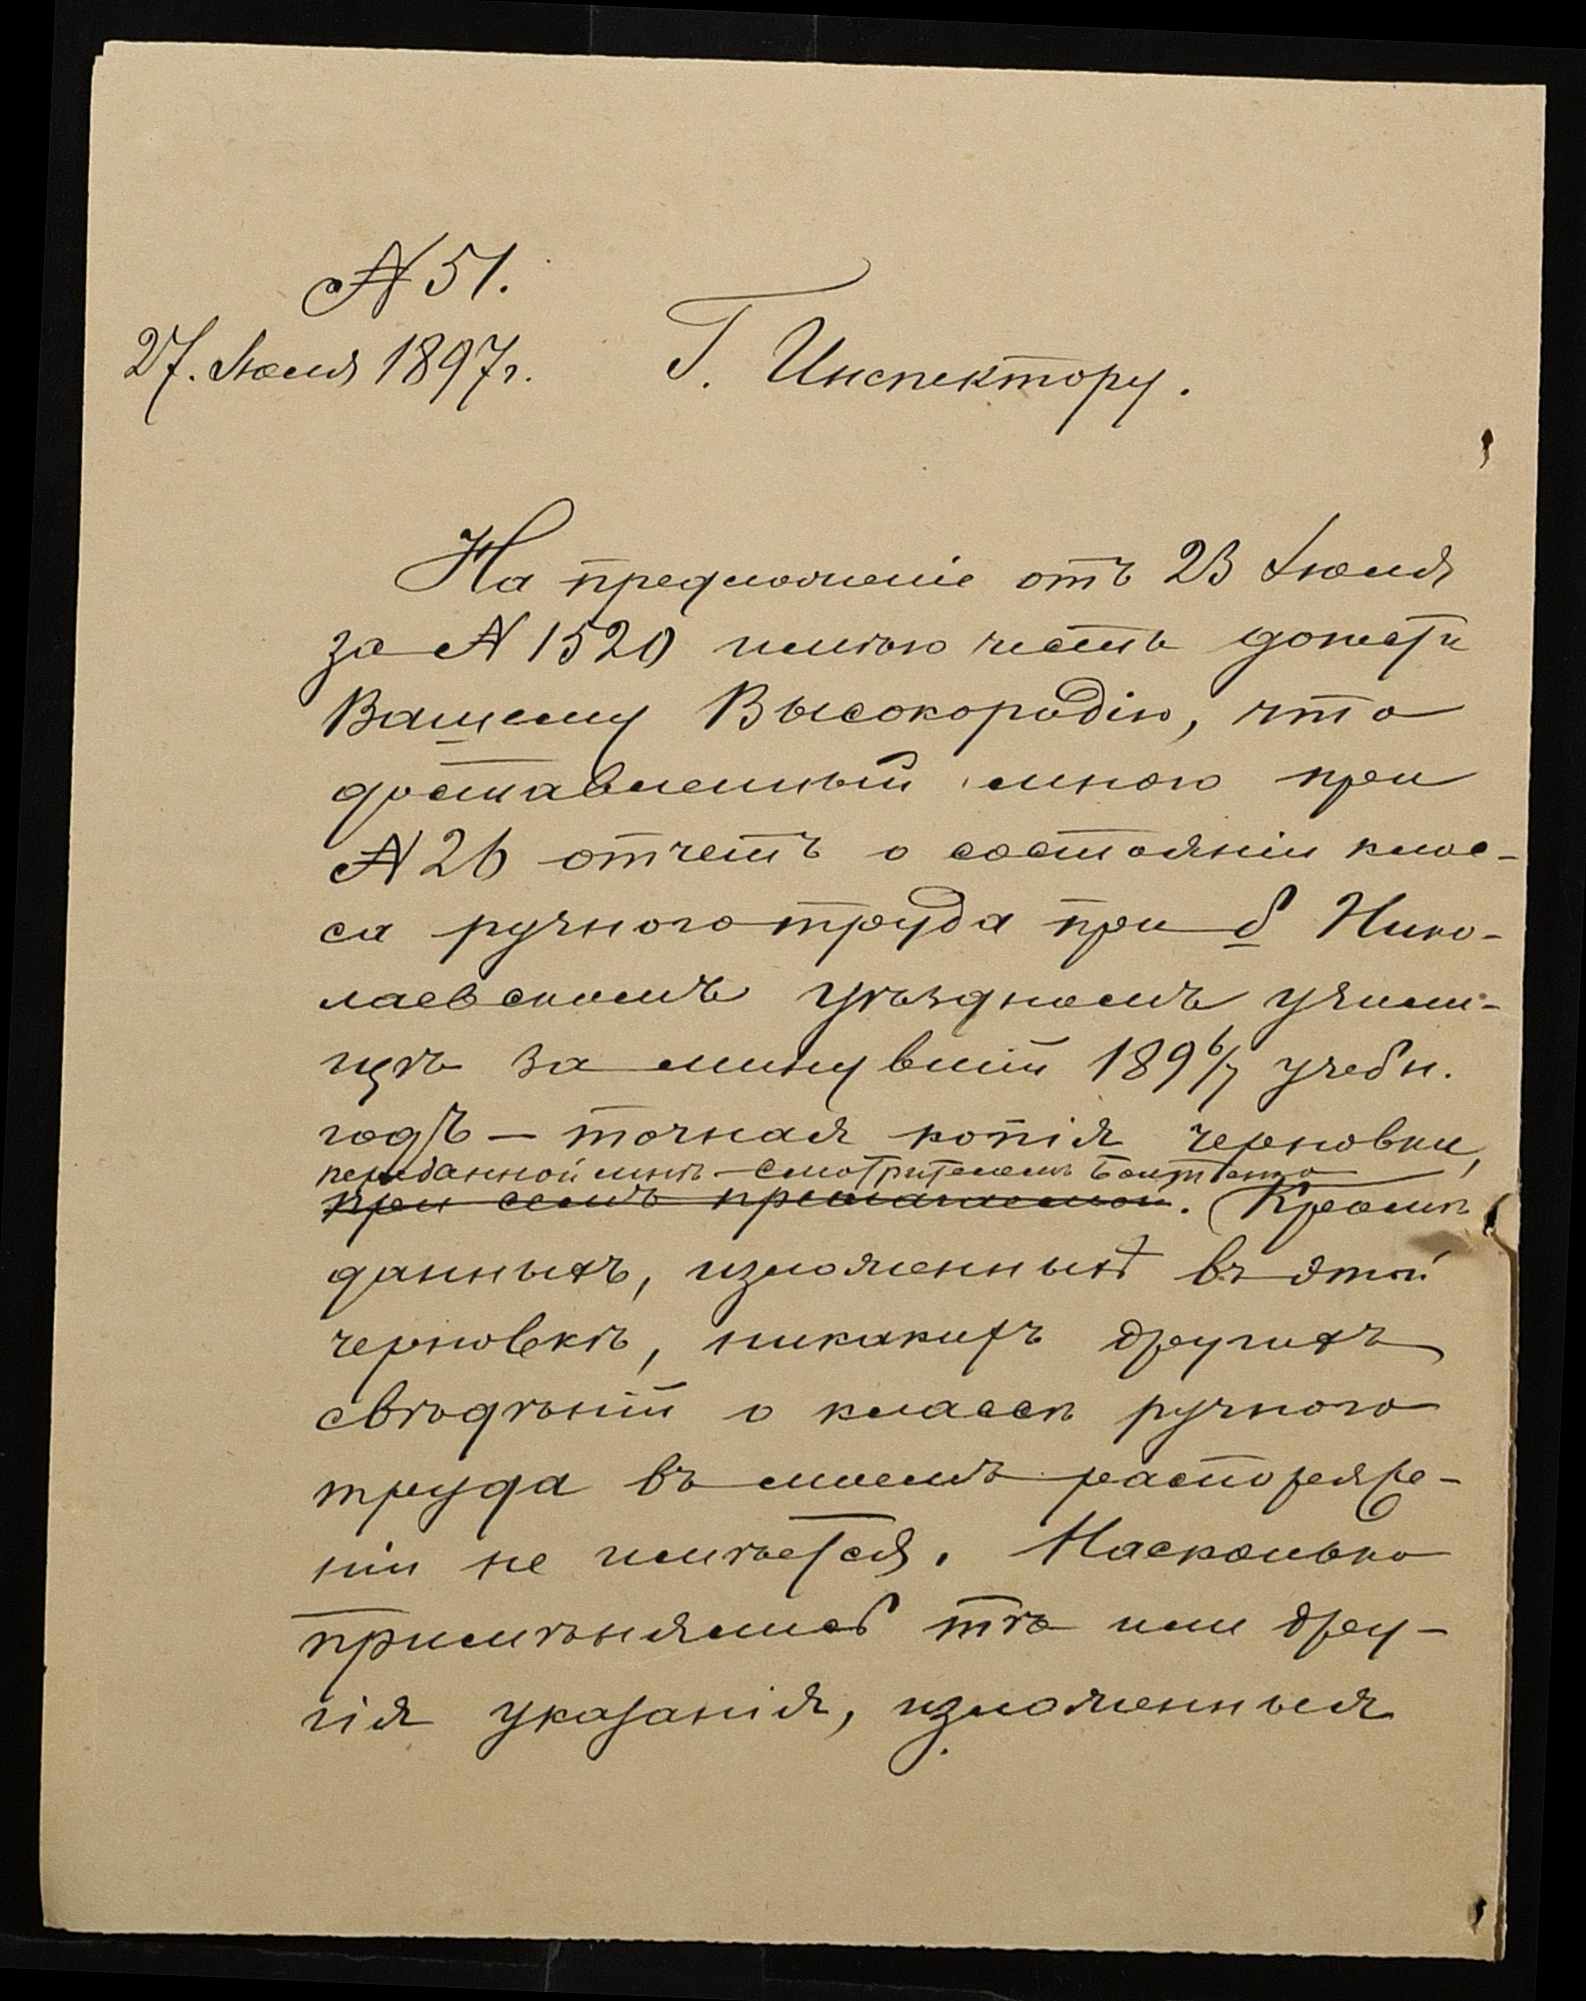 № 51.
27. Июля 1897 г.
Г. Инспектору.
На предложеніе отъ 23 Іюля
за № 1520 имѣю честь донести
Вашему Высокородію, что
доставленный мною при
№ 26 отчетъ о состояніи клас-
са ручного труда при б Нико-
лаевскомъ уѣздномъ учили-
щѣ за минувшій 1896/7 учебн.
годъ – точная копія черновки,
переданной мнѣ Смотрителемъ
при семъ прилагаемой. Кромѣ
данныхъ, изложенныхъ въ этой
черновкѣ, никакихъ другихъ
свѣдѣній о классѣ ручного
труда въ моемъ распоряже-
ніи не имѣется. Насколько
примѣнялись тѣ или дру-
гія указанія, изложенныя